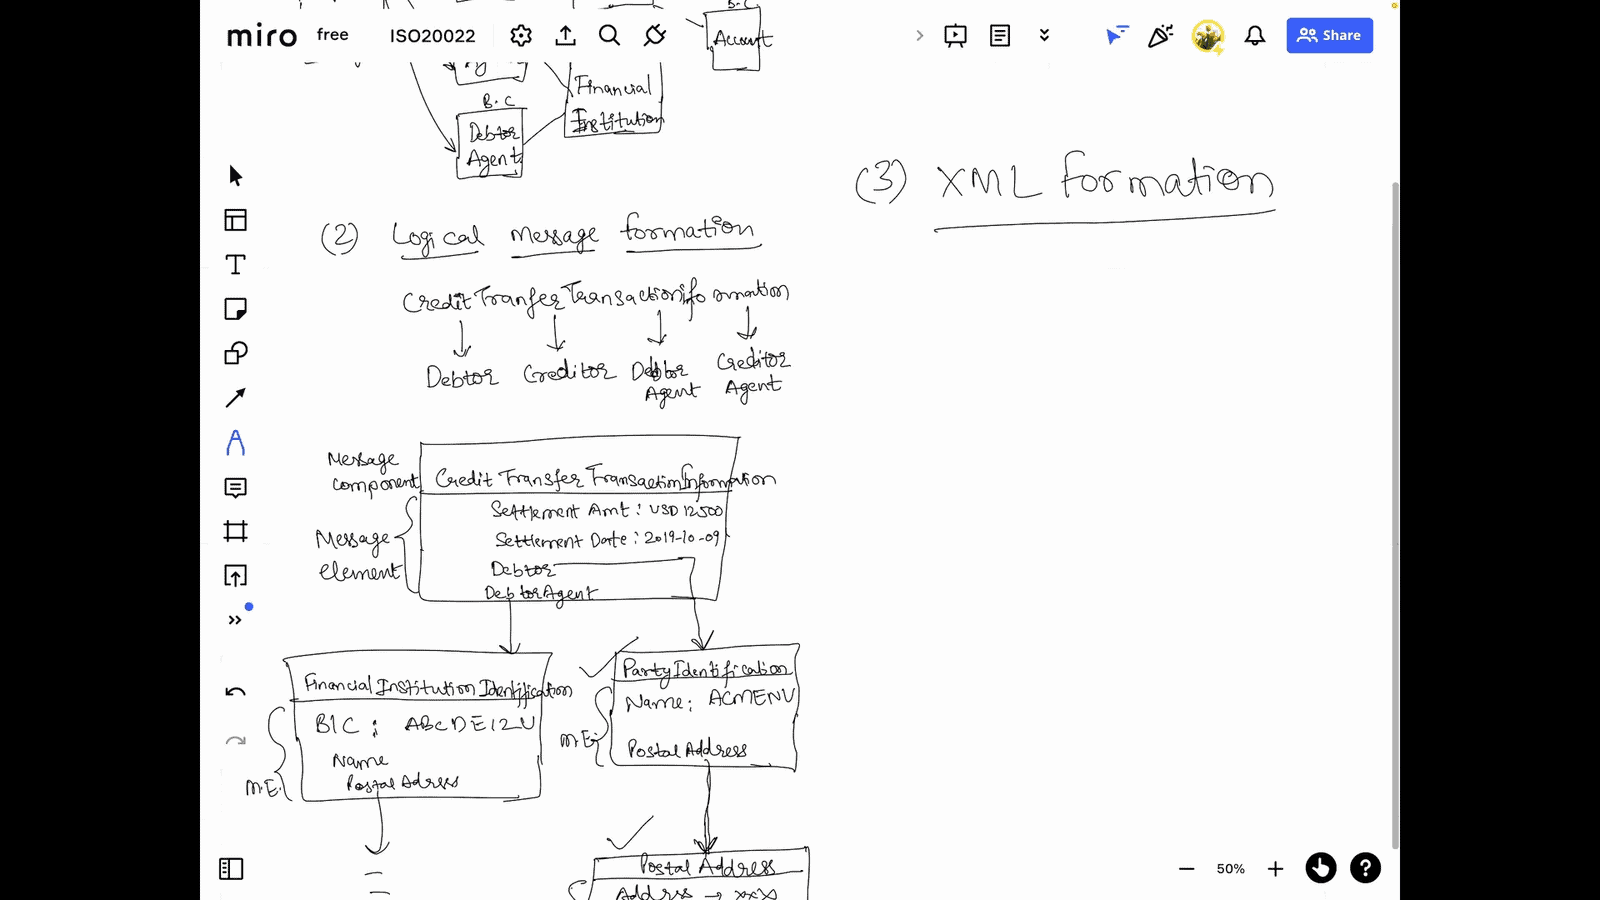 miro free ISO20022
Share
B.C
Account
Financial
Institution
B.C
Debtor
Agent
(2) Logical Message formation
Credit Tranfer Transaction info ormation
Debtor Creditor Debtor Agent Creditor Agent
Message component
Credit Transfer Transaction Information
Settlement Amt : USD 12500
Settlement Date : 2019-10-09
Debtor
Debtor Agent
Message element
Financial Institution Identification
BIC : ABCDE12U
Name
Postal Adress
M.E.
Party Identification
Name : ACMENV
Postal Address
M.E.
Postal Address
Address → xxx
(3) XML formation
50%